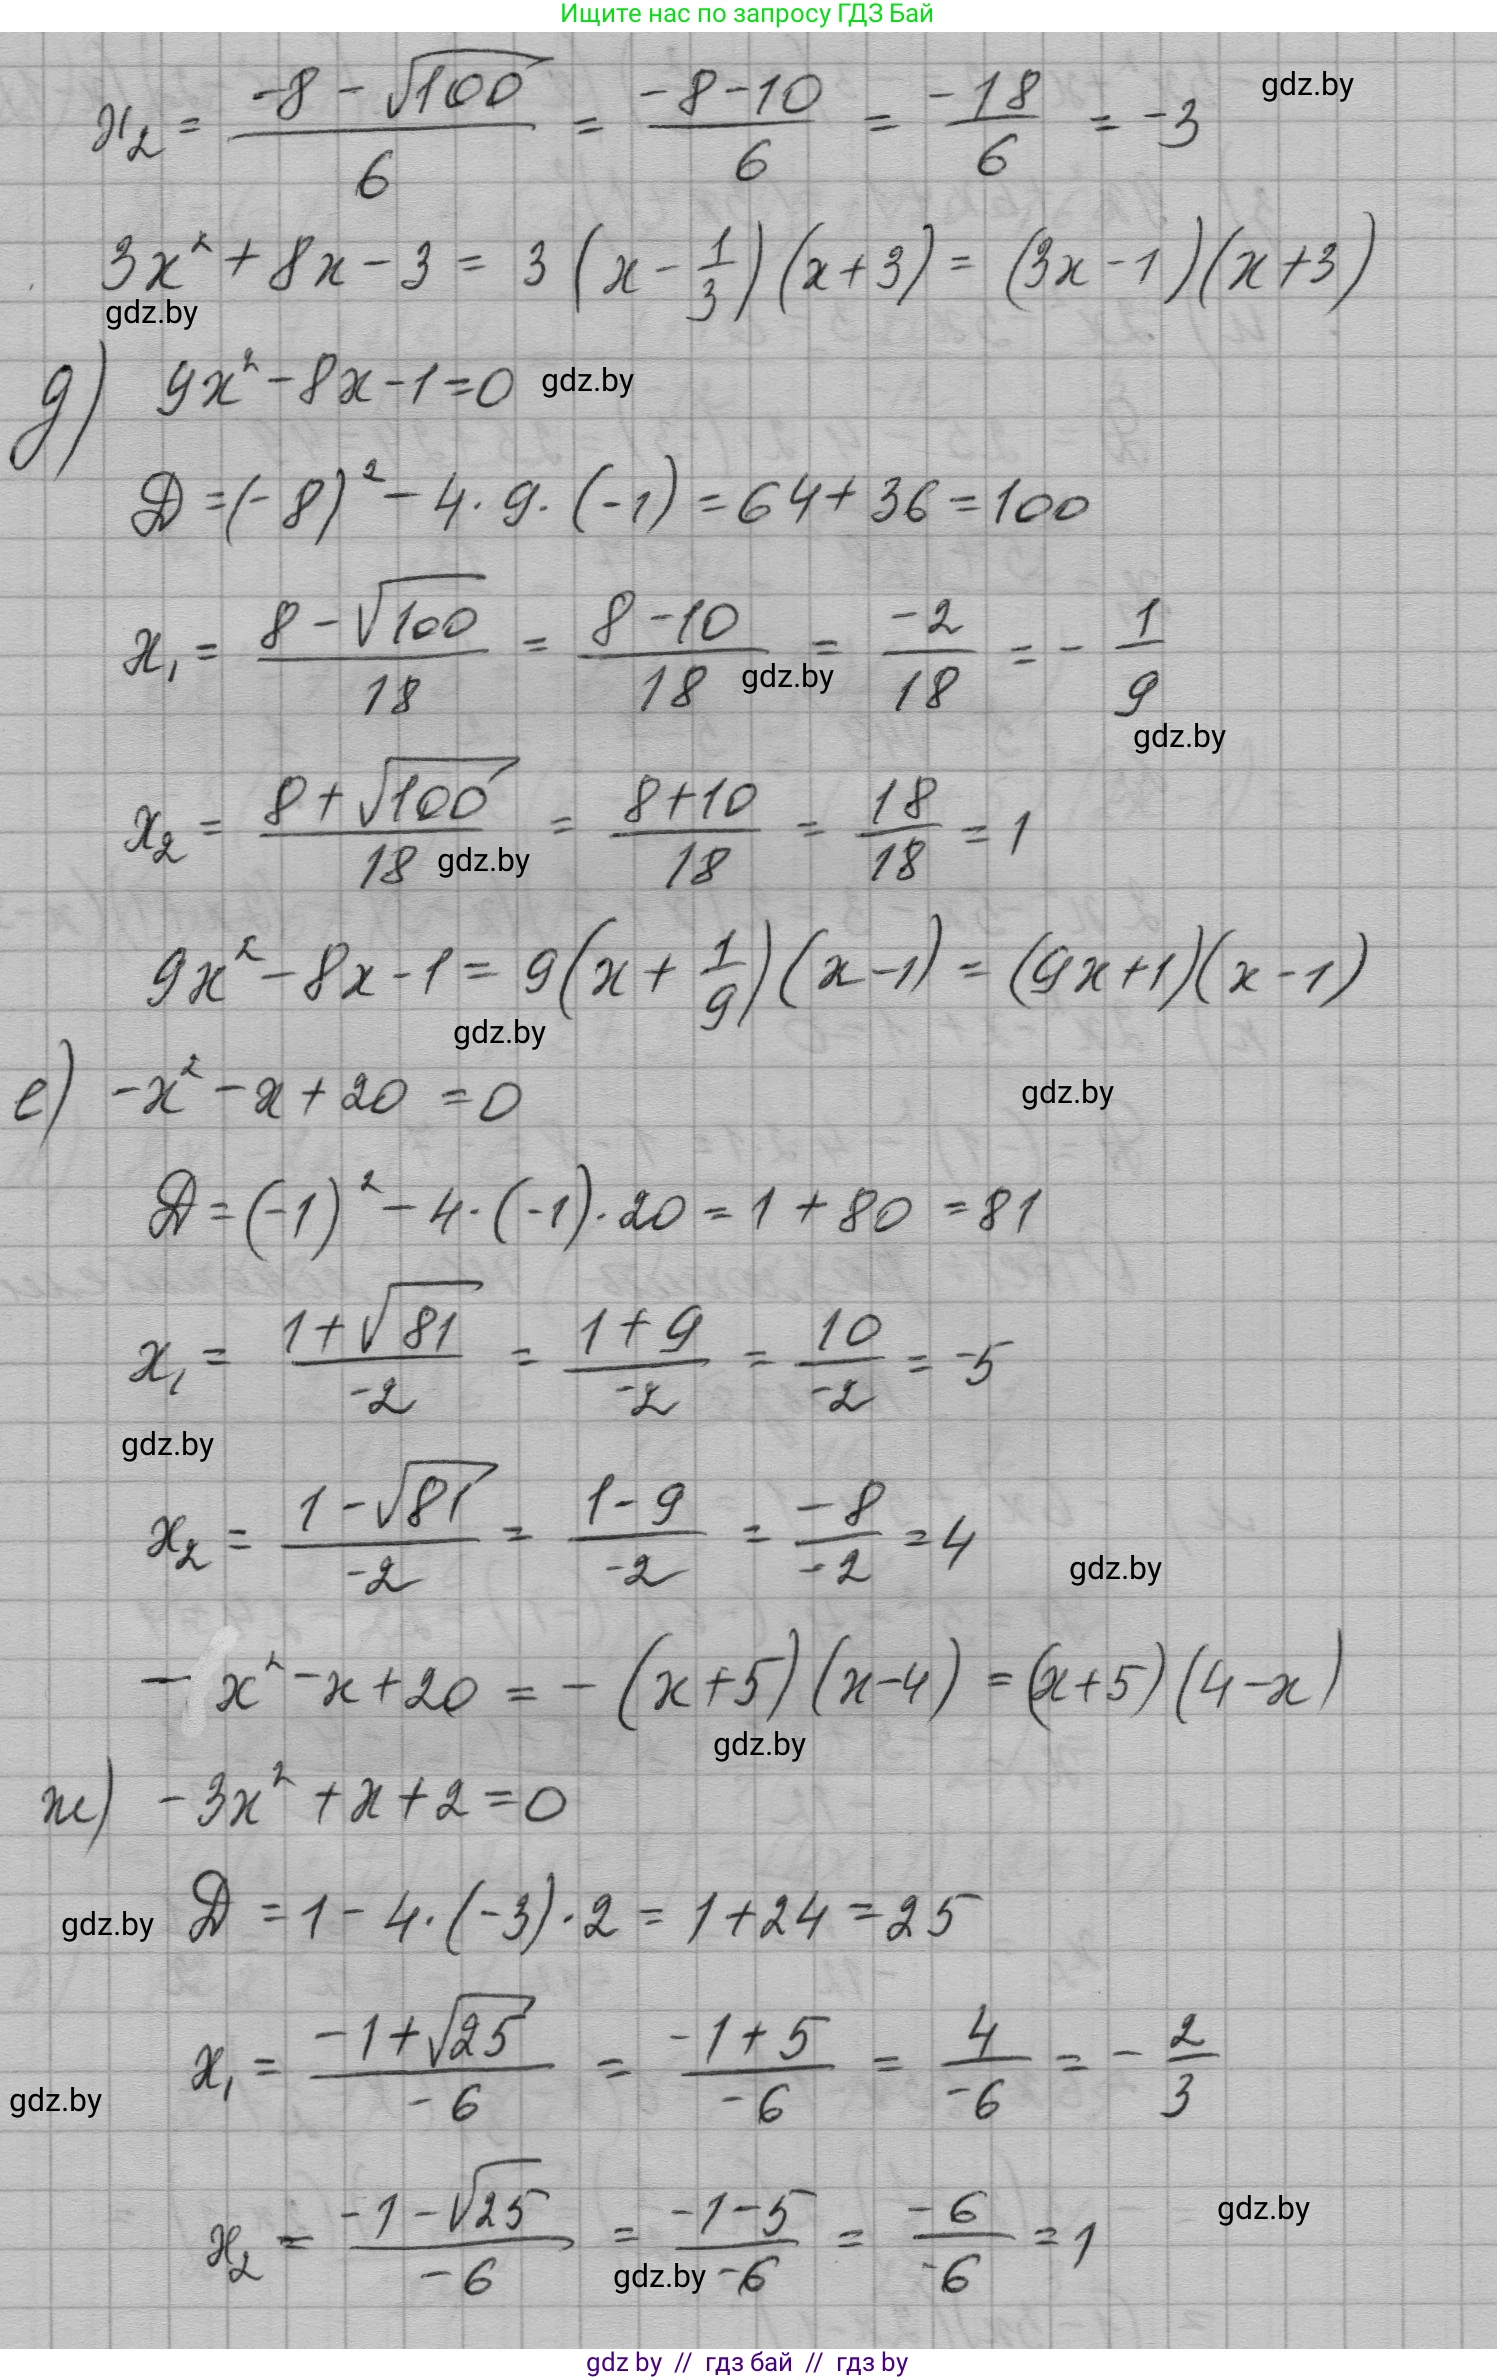 Ищите нас по запросу ГДЗ Бай
x₂ = (-8 - √100)/6 = (-8-10)/6 = -18/6 = -3
gdz.by
3x² + 8x - 3 = 3(x - 1/3)(x+3) = (3x-1)(x+3)
gdz.by
д) 9x² - 8x - 1 = 0
gdz.by
D = (-8)² - 4·9·(-1) = 64 + 36 = 100
x₁ = (8 - √100)/18 = (8-10)/18 = -2/18 = -1/9
gdz.by
gdz.by
x₂ = (8 + √100)/18 = (8+10)/18 = 18/18 = 1
gdz.by
9x² - 8x - 1 = 9(x + 1/9)(x-1) = (9x+1)(x-1)
gdz.by
е) -x² - x + 20 = 0
gdz.by
D = (-1)² - 4·(-1)·20 = 1 + 80 = 81
x₁ = (1 + √81)/-2 = (1+9)/-2 = 10/-2 = -5
gdz.by
x₂ = (1 - √81)/-2 = (1-9)/-2 = -8/-2 = 4
gdz.by
- x² - x + 20 = -(x+5)(x-4) = (x+5)(4-x)
gdz.by
ж) -3x² + x + 2 = 0
gdz.by
D = 1 - 4·(-3)·2 = 1 + 24 = 25
x₁ = (-1 + √25)/-6 = (-1+5)/-6 = 4/-6 = -2/3
gdz.by
x₂ = (-1 - √25)/-6 = (-1-5)/-6 = -6/-6 = 1
gdz.by
gdz.by
gdz by // гдз бай // гдз by